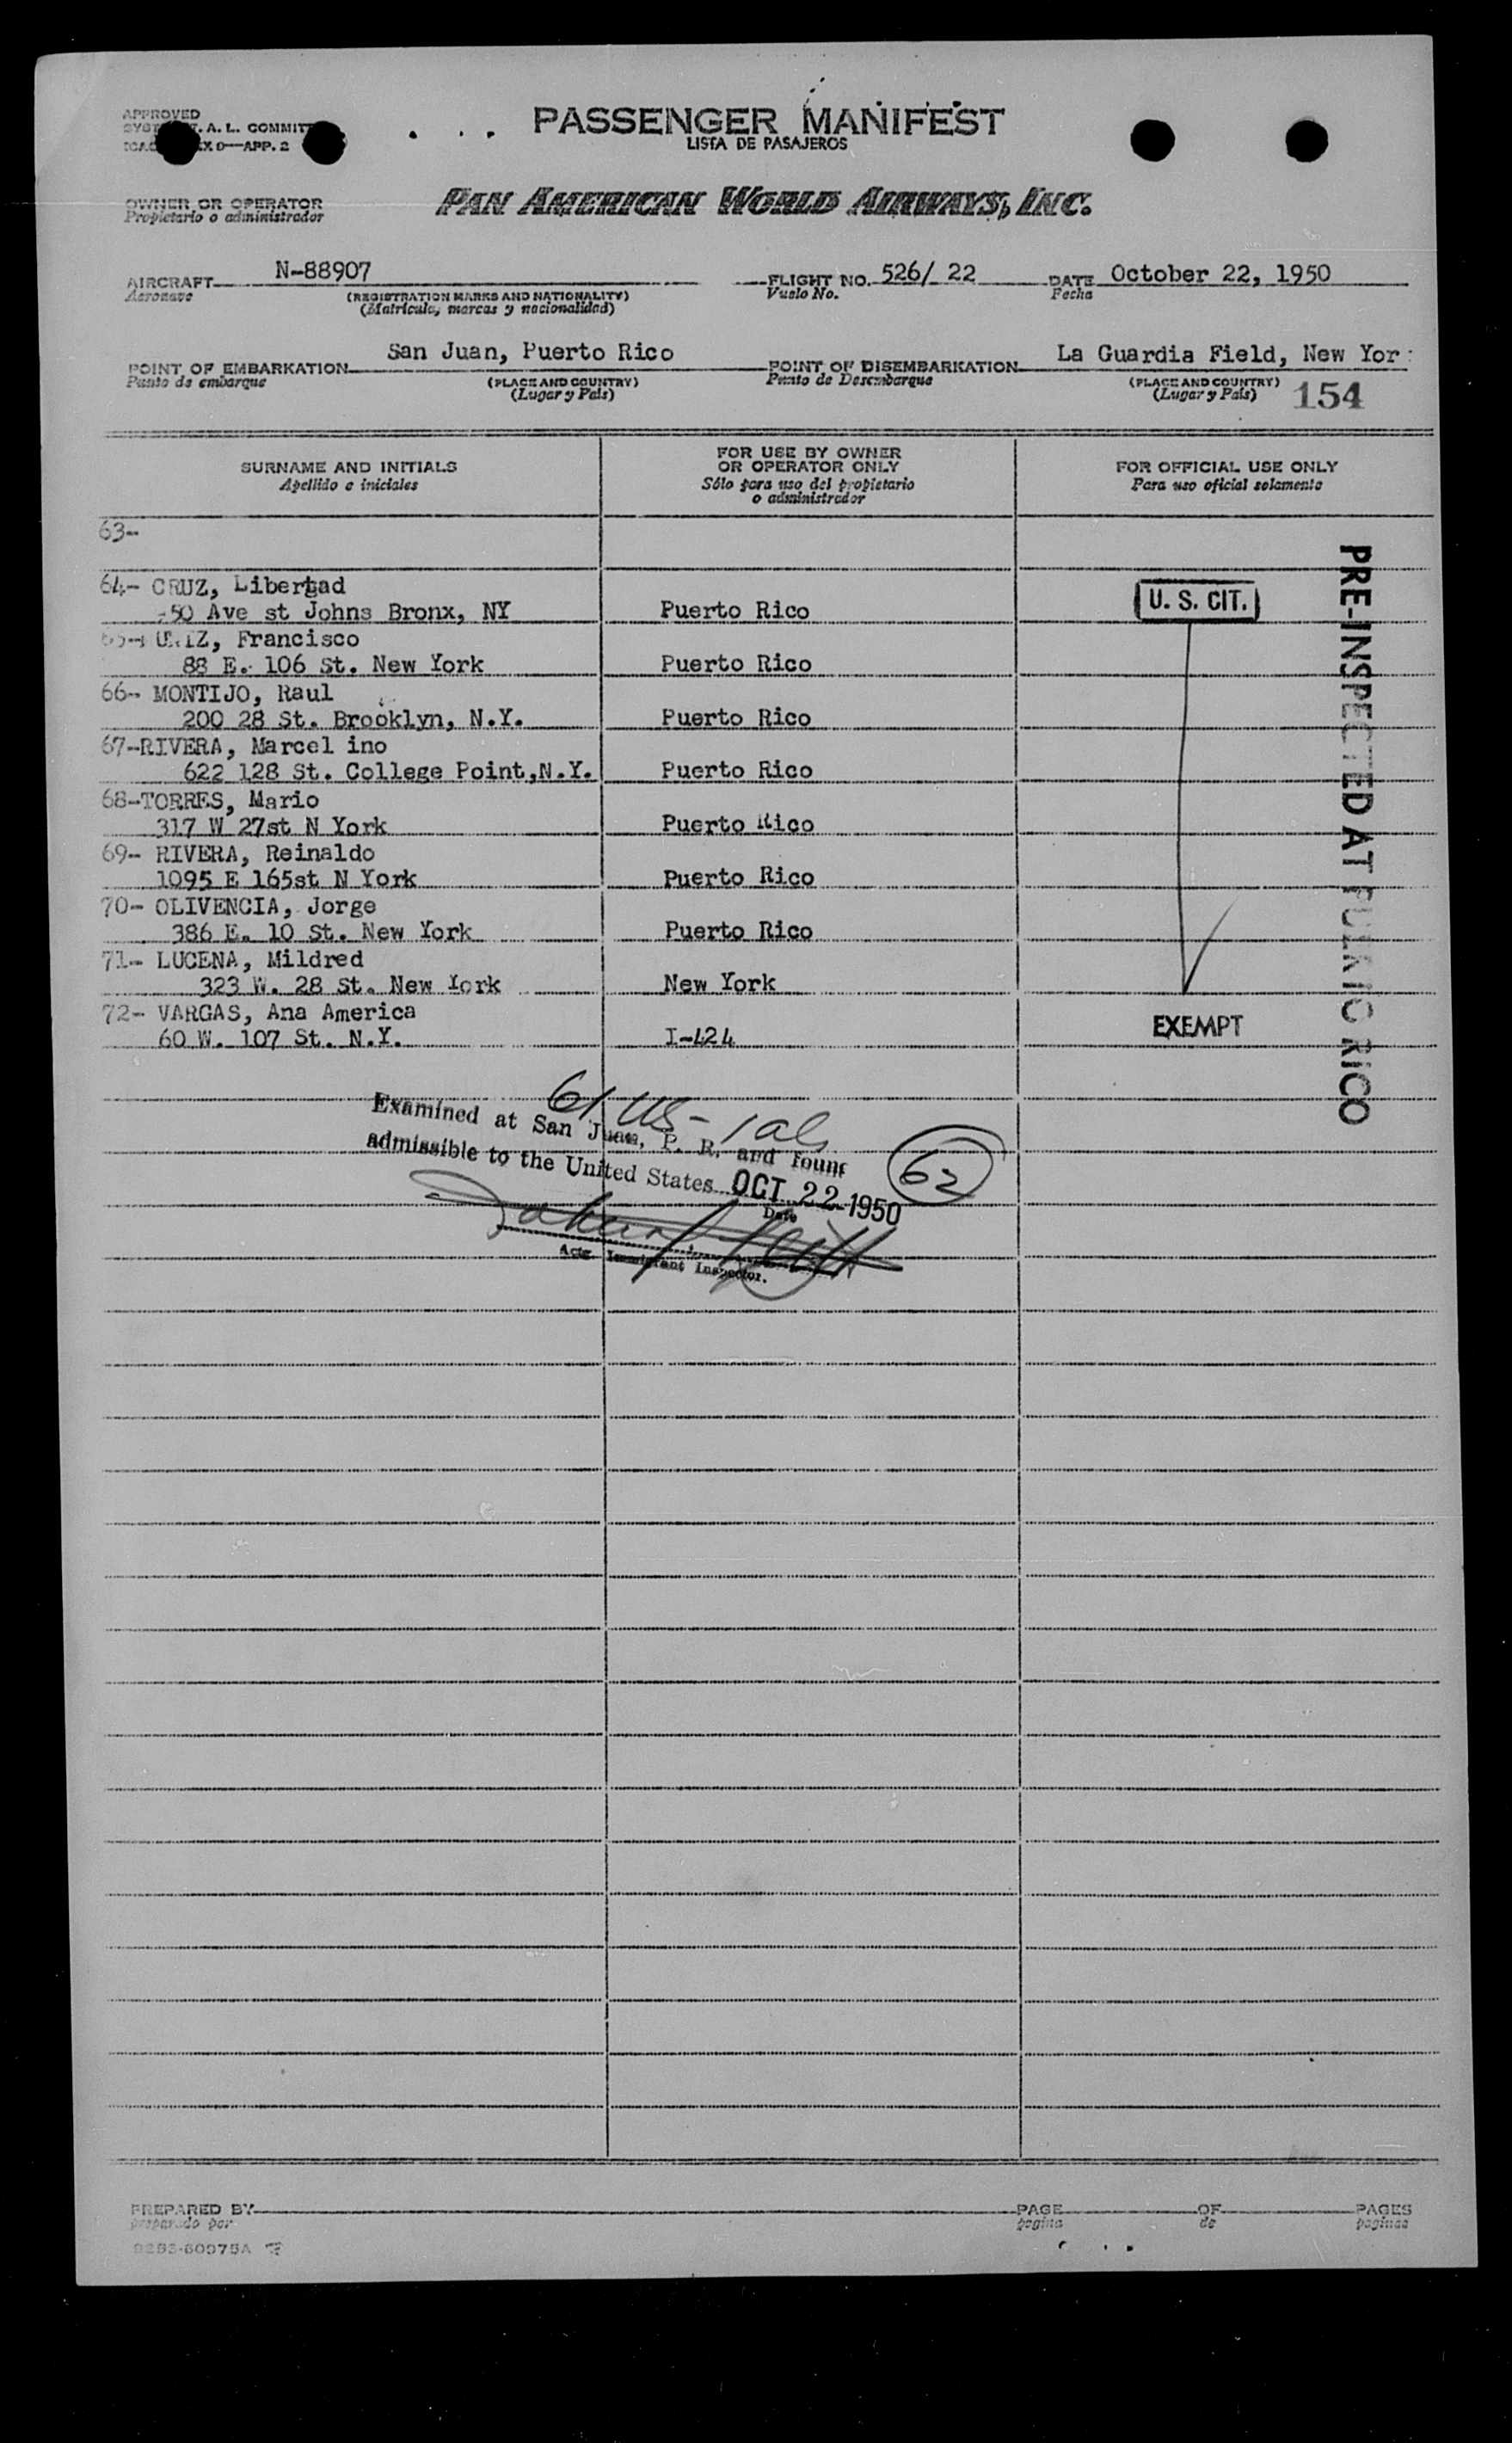 APPROVED
A. L. COMMIT
APP. 2
PASSENGER MANIFEST
LISTA DE PASAJEROS
OWNER OR OPERATOR
Propietario o administrador
PAN AMERICAN WORLD AIRWAYS, INC.
AIRCRAFT N-88907 FLIGHT NO. 526/ 22 DATE October 22, 1950
Aeronave (REGISTRATION MARKS AND NATIONALITY) Vuelo No. Fecha
(Matrícula, marcas y nacionalidad)
POINT OF EMBARKATION San Juan, Puerto Rico POINT OF DISEMBARKATION La Guardia Field, New Yor
Punto de embarque (PLACE AND COUNTRY) Punto de Desembarque (PLACE AND COUNTRY)
(Lugar y País) (Lugar y País) 154
SURNAME AND INITIALS
Apellido e iniciales
FOR USE BY OWNER
OR OPERATOR ONLY
Sólo para uso del propietario
o administrador
FOR OFFICIAL USE ONLY
Para uso oficial solamente
63-
64- CRUZ, Libertad
50 Ave st Johns Bronx, NY Puerto Rico U. S. CIT.
Francisco
88 E. 106 St. New York Puerto Rico
66- MONTIJO, Raul
200 28 St. Brooklyn, N.Y. Puerto Rico
67-RIVERA, Marcel ino
622 128 St. College Point,N.Y. Puerto Rico
68-TORRES, Mario
317 W 27st N York Puerto Rico
69- RIVERA, Reinaldo
1095 E 165st N York Puerto Rico
70- OLIVENCIA, Jorge
386 E. 10 St. New York Puerto Rico
71- LUCENA, Mildred
323 W. 28 St. New York New York
72- VARGAS, Ana America
60 W. 107 St. N.Y. I-424 EXEMPT
PRE-INSPECTED AT RICO
61 US - 1 al
Examined at San Juan, P. R. and foun
admissible to the United States OCT 22 1950
Date
62
Actg. Immigrant Inspector.
PREPARED BY PAGE OF PAGES
preparado por pagina de paginas